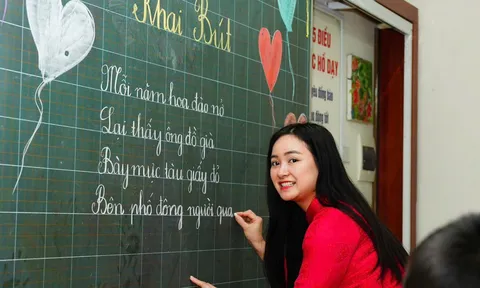 Khai Bút
Mỗi năm hoa đào nở
Lại thấy ông đồ già
Bày mực tàu giấy đỏ
Bên phố đông người qua
5 ĐIỀU
C HỒ DẠY